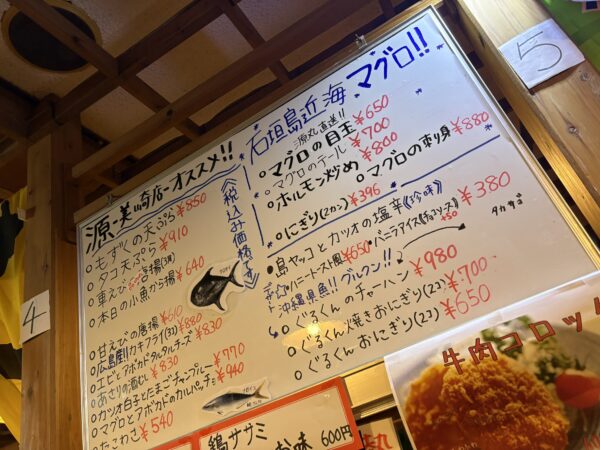 源・美崎店オススメ!!
《税込み価格です》
・もずくの天ぷら ¥850
・タコ天ぷら ¥910
・本日の小魚から揚 ¥640
・甘えびの唐揚 ¥610
・広島産カキフライ(3) ¥880
・エビとアボカドタルタルチーズ ¥830
・あさりの酒むし ¥830
・カツオ白子とたまごチャンプルー ¥770
・マグロとアボカドのカルパッチョ ¥940
・たこわさ ¥540
石垣島近海、マグロ!!
源丸直送!!
・マグロの目玉 ¥650
・マグロのテール ¥700
・ホルモン炒め ¥800
・マグロの刺身 ¥880
・にぎり(2カン) ¥396
・島ヤッコとカツオの塩辛《珍味》 ¥380
・バニラアイス《チョコソース》 +50
¥650
沖縄県魚!!グルクン!!
・ぐるくんのチャーハン ¥980
・ぐるくん焼きおにぎり(2コ) ¥700
・ぐるくんおにぎり(2コ) ¥650
4
5
牛肉コロッケ
鶏ササミ
600円